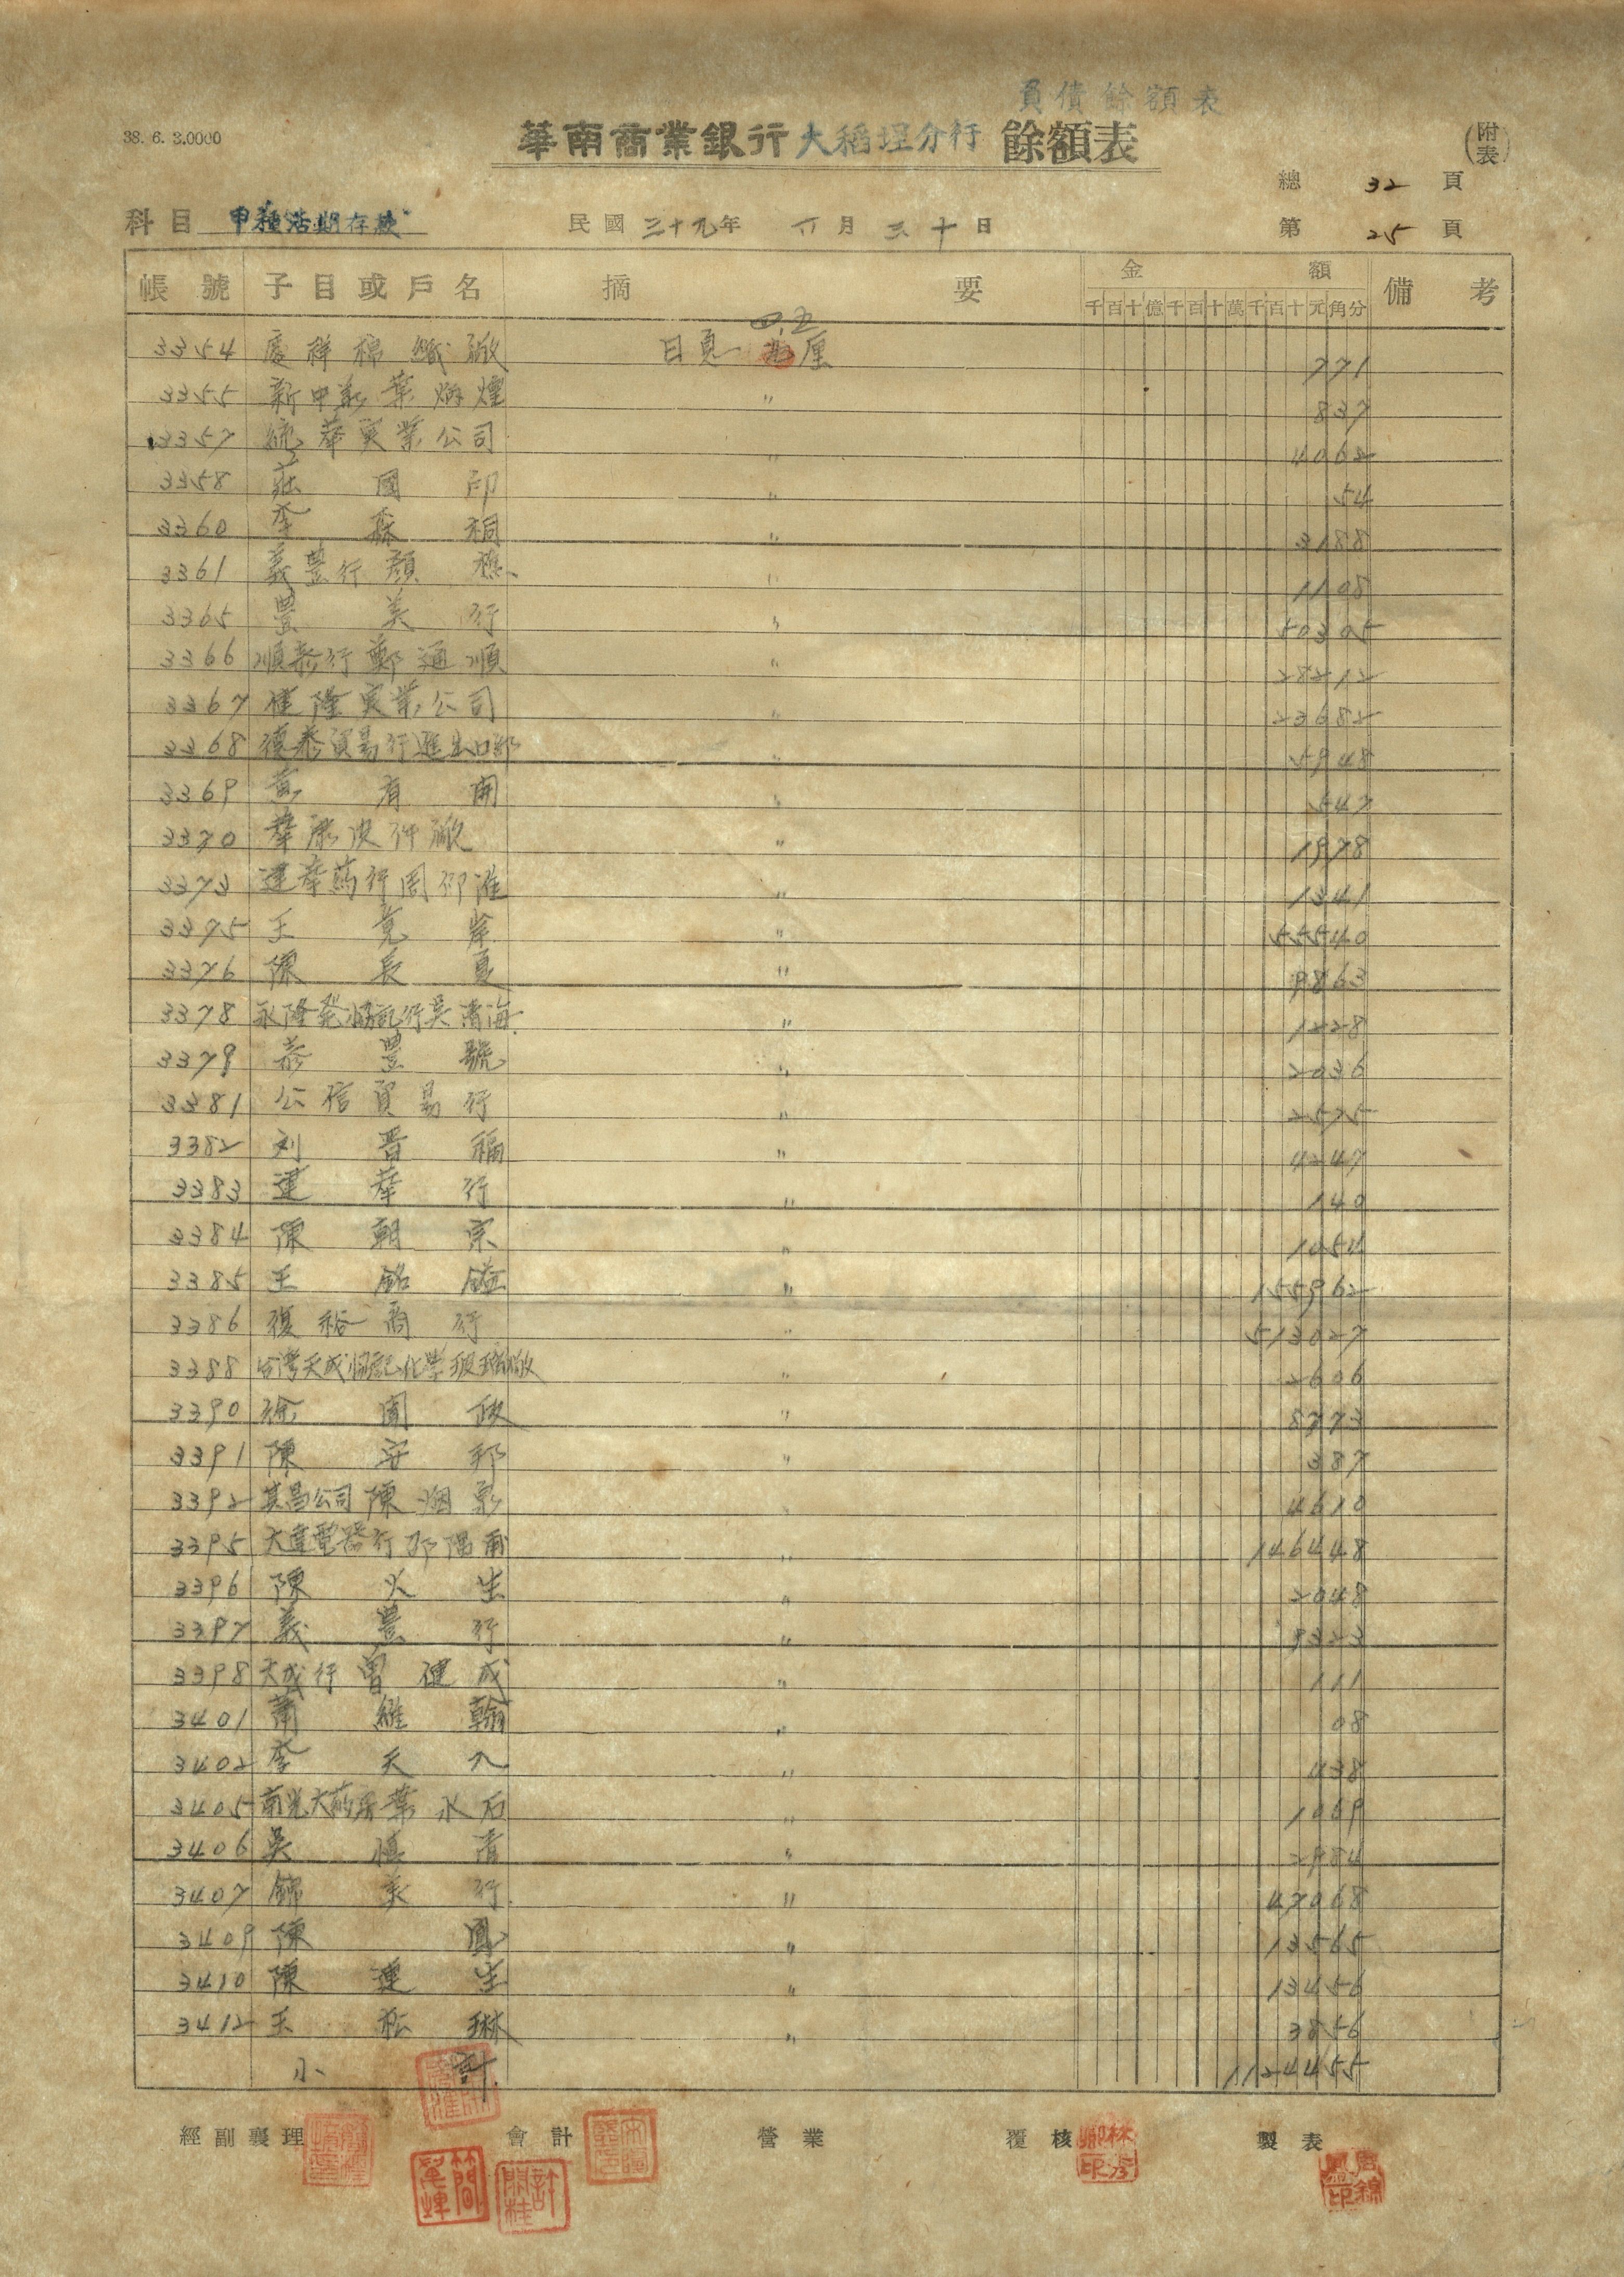 負債餘額表
38. 6. 3.0000
華南商業銀行 大稻埕分行 餘額表
(附表)
總 32 頁
科目 甲種活期存款 民國 三十九年 六月 三十日 第 25 頁
帳號 子目或戶名 摘要 金額 備考
千百十億千百十萬千百十元角分
四.五
3354 慶祥棉織廠 日息 厘 771
3355 新中 葉炳煌 〃 837
3357 統華実業公司 〃 4062
3358 莊國印 〃 54
3360 李森桐 〃 3188
3361 義豐行顏 〃 1108
3365 豐美行 〃 50305
3366 順泰行鄭通順 〃 28212
3367 建隆実業公司 〃 23682
3368 德泰貿易行進出口部 〃 5948
3369 黃有開 〃 547
3370 華 廠 〃 1978
3373 建華葯行周 〃 1341
3375 王 〃 55540
3376 陳長夏 〃 9863
3378 永隆発協記行吳清海 〃 1228
3379 泰豐號 〃 2036
3381 公信貿易行 〃 2575
3382 刘晋福 〃 4247
3383 建華行 〃 140
3384 陳朝宗 〃 1454
3385 王銘鎰 〃 155962
3386 復裕商行 〃 513027
3388 台湾天成協記化学玻璃廠 〃 2606
3390 徐國政 〃 8773
3391 陳守邦 〃 387
3392 其昌公司陳烟 〃 4610
3395 大達電器行邵陽甫 〃 146448
3396 陳火生 〃 2048
3397 義豊行 〃 9323
3398 大成行曽健成 〃 111
3401 蕭維翰 〃 08
3402 李天九 〃 438
3405 南光大葯房葉水石 〃 1069
3406 吳慎清 〃 2984
3407 錦泰行 〃 47068
3409 陳鳳 〃 13565
3410 陳連生 〃 13456
3412 王松琳 〃 3856
小計 1124455
經副襄理 會計 營業 覆核 製表